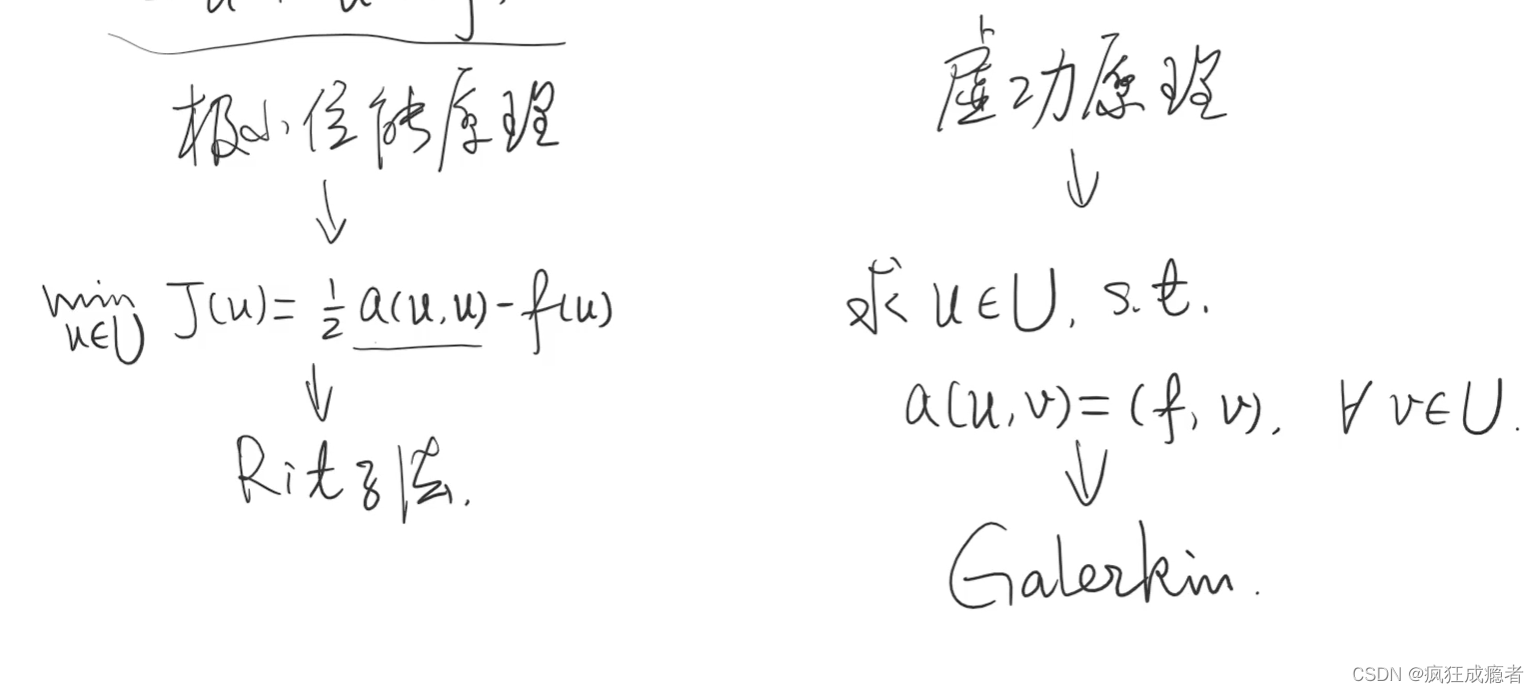 极小位能原理
min J(u) = 1/2 a(u,u) - f(u)
u∈U
Ritz法.
虚功原理
求 u∈U, s.t.
a(u,v) = (f, v), ∀ v∈U.
Galerkin.
CSDN @疯狂成瘾者